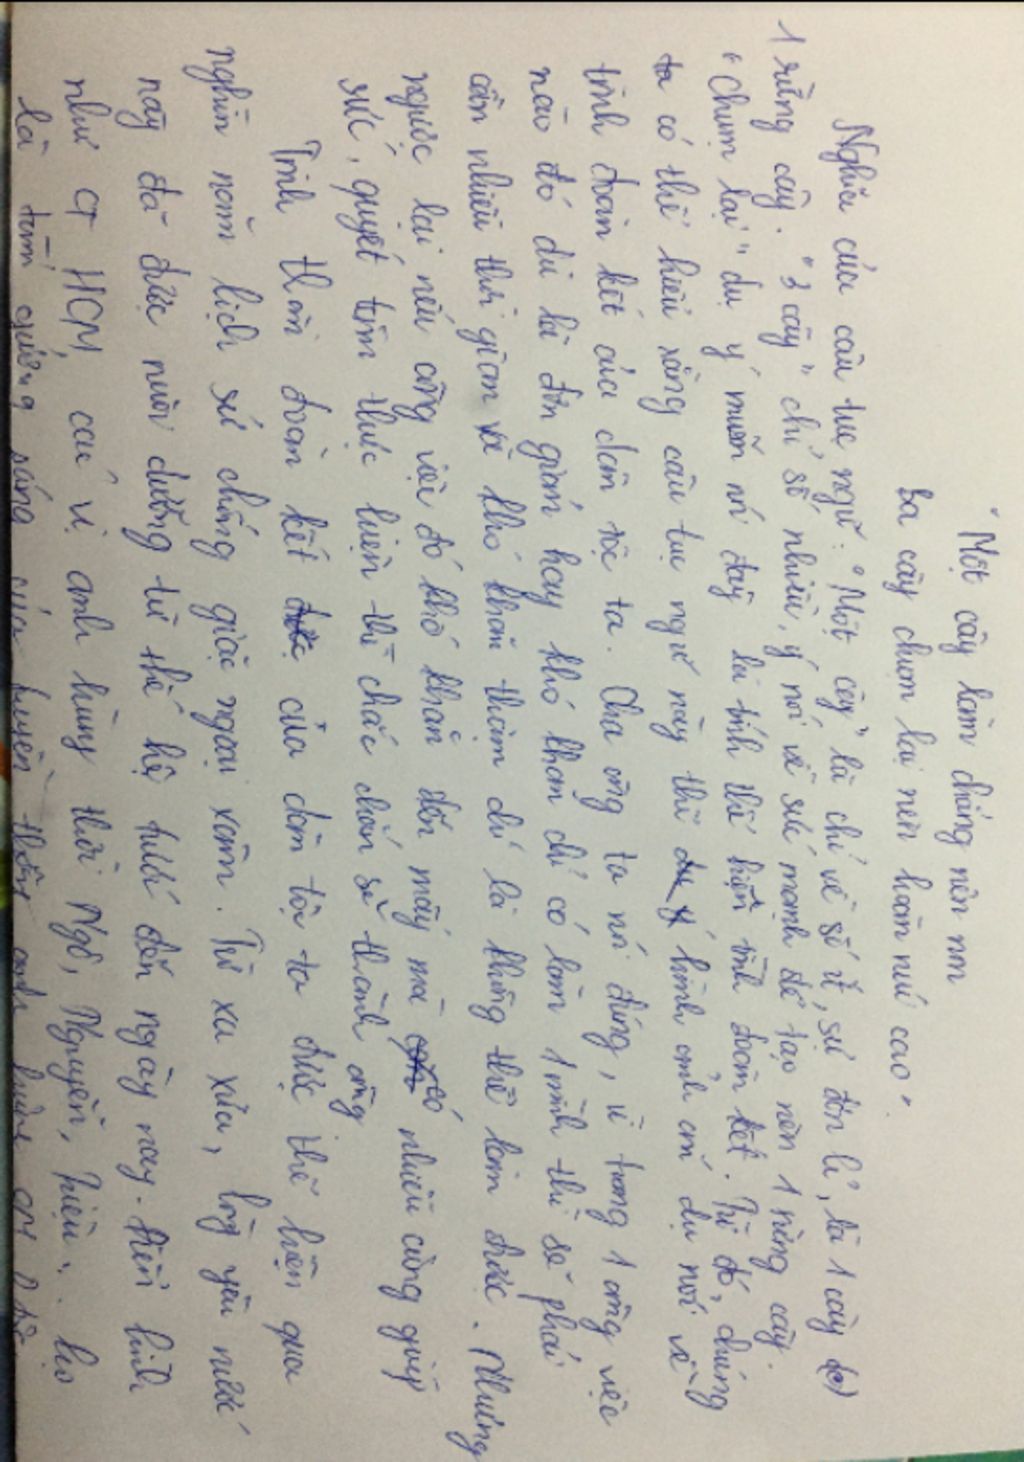 "Một cây làm chẳng nên non
Ba cây chụm lại nên hòn núi cao".
Nghĩa của câu tục ngữ: "Một cây" là chỉ về số ít, sự đơn lẻ, là 1 cây
1 rừng cây. "3 cây" chỉ số nhiều, ý nói về sức mạnh để tạo nên 1 rừng cây.
"Chụm lại" dụ ý muốn nói đây là tính thể hiện tình đoàn kết. Từ đó, chúng
ta có thể hiểu rằng câu tục ngữ này thì hình ảnh ẩn dụ nói về
tình đoàn kết của dân tộc ta. Cha ông ta nói đúng, vì trong 1 công việc
nào đó dù là đơn giản hay khó khăn dù có làm 1 mình thì sẽ phải
cần nhiều thời gian và khó khăn thậm chí là không thể làm được. Nhưng
ngược lại nếu công việc đó khó khăn đến mấy mà có nhiều cùng giúp
sức, quyết tâm thực hiện thì chắc chắn sẽ thành công
Tinh thần đoàn kết của dân tộc ta được thể hiện qua
nghìn năm lịch sử chống giặc ngoại xâm. Từ xa xưa, lòng yêu nước
này đã được nuôi dưỡng từ thế hệ trước đến ngày nay. Điển hình
như CT HCM, các vị anh hùng thời Ngô, Nguyễn, Triệu... họ
là tấm gương sáng của truyền thống